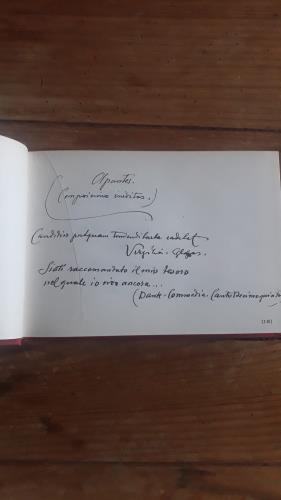 Apuntes.
(Impresiones inéditas.)
Candidior postquam tondenti barba cadebat
Virgilio - Eglogas.
Sieti raccomandato il mio tesoro
nel quale io vivo ancora...
(Dante - Commedia. Canto Decimoquinto